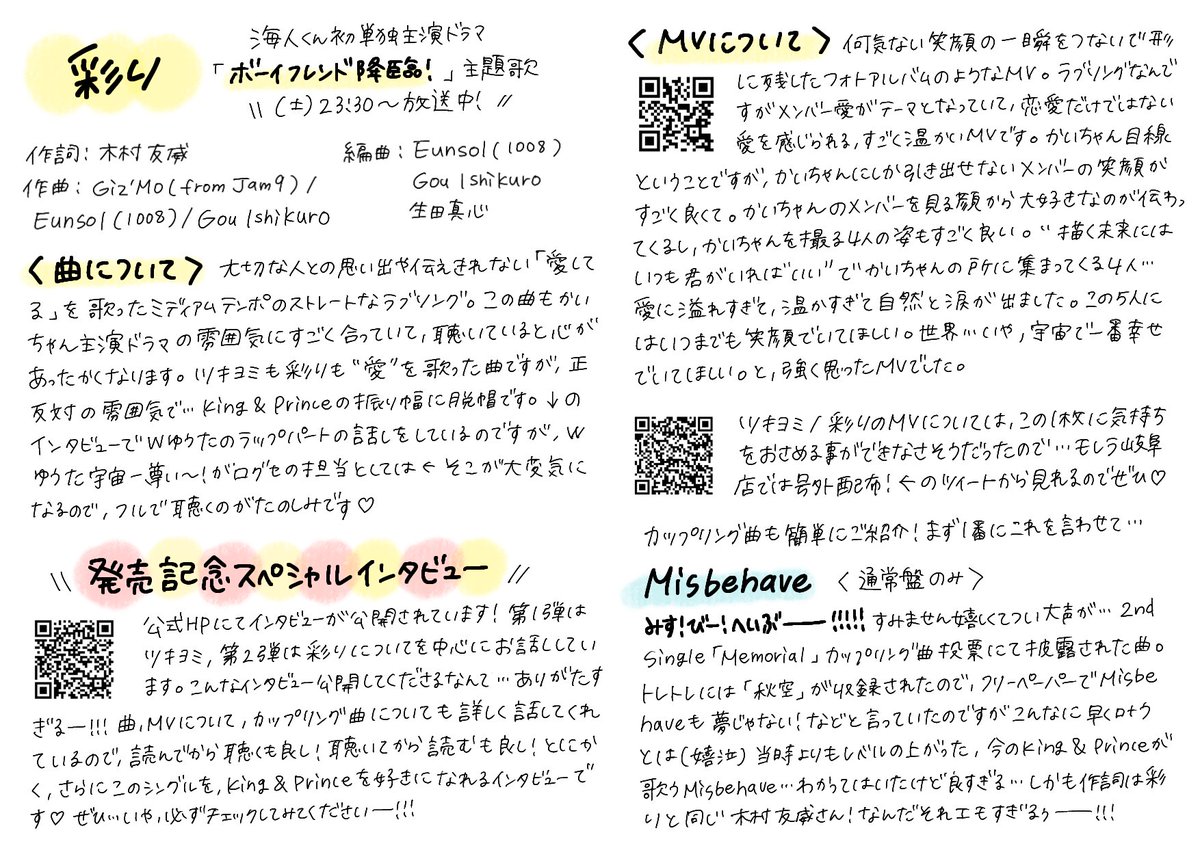 彩り
海人くん初単独主演ドラマ
「ボーイフレンド降臨！」主題歌
\\ (土)23:30〜放送中！ //
作詞：木村友威
作曲：Giz'Mo(from Jam9)/
Eunsol(1008)/Gou Ishikuro
編曲：Eunsol(1008)
Gou Ishikuro
生田真心
〈曲について〉 大切な人との思い出や伝えきれない「愛して
る」を歌ったミディアムテンポのストレートなラブソング。この曲もかい
ちゃん主演ドラマの雰囲気にすごく合っていて，聴いていると心が
あったかくなります。ツキヨミも彩りも“愛”を歌った曲ですが，正
反対の雰囲気で…King & Princeの振り幅に脱帽です。↓の
インタビューでWゆうたのラップパートの話しをしているのですが，W
ゆうた宇宙一尊い〜！が口グセの担当としては←そこが大変気に
なるので，フルで聴くのがたのしみです♡
\\ 発売記念スペシャルインタビュー //
公式HPにてインタビューが公開されています！第1弾は
ツキヨミ，第2弾は彩りについてを中心にお話ししてい
ます。こんなインタビュー公開してくださるなんて…ありがたす
ぎるー!!! 曲，MVについて，カップリング曲についても詳しく話してくれ
ているので，読んでから聴くも良し！聴いてから読むも良し！とにか
く，さらにこのシングルを，King & Princeを好きになれるインタビューで
す♡ ぜひ…いや，必ずチェックしてみてくださいー!!!
〈MVについて〉 何気ない笑顔の一瞬をつないで形
に残したフォトアルバムのようなMV。ラブソングなんで
すがメンバー愛がテーマとなっていて，恋愛だけではない
愛を感じられる，すごく温かいMVです。かいちゃん目線
ということですが，かいちゃんにしか引き出せないメンバーの笑顔が
すごく良くて。かいちゃんのメンバーを見る顔から大好きなのが伝わっ
てくるし，かいちゃんを撮る4人の姿もすごく良い。“描く未来には
いつも君がいればいい”でかいちゃんの所に集まってくる4人…
愛に溢れすぎて，温かすぎて自然と涙が出ました。この5人に
はいつまでも笑顔でいてほしい。世界…いや，宇宙で一番幸せ
でいてほしい。と，強く思ったMVでした。
ツキヨミ/彩りのMVについては，この1枚に気持ち
をおさめる事ができなさそうだったので…モレラ岐阜
店では号外配布！←のツイートから見れるのでぜひ♡
カップリング曲も簡単にご紹介！まず1番にこれを言わせて…
Misbehave 〈通常盤のみ〉
みす！びー！へいぶ——!!!!! すみません嬉しくてつい大声が… 2nd
Single「Memorial」カップリング曲投票にて披露された曲。
トレトレには「秋空」が収録されたので，フリーペーパーでMisbe
haveも夢じゃない！などと言っていたのですがこんなに早く叶う
とは(嬉泣)当時よりもレベルの上がった，今のKing & Princeが
歌うMisbehave…わかってはいたけど良すぎる…しかも作詞は彩
りと同じ木村友威さん！なんだそれエモすぎるぅ——!!!